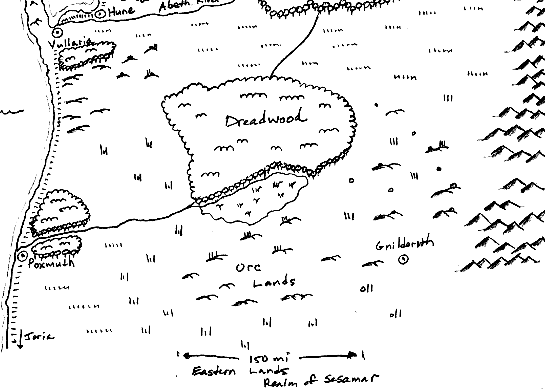 Hune
Abeth River
Vullaria
Dreadwood
Poxmuth
Gnildorath
Orc
Lands
Joria
150 mi
Eastern Lands
Realm of Sesamar